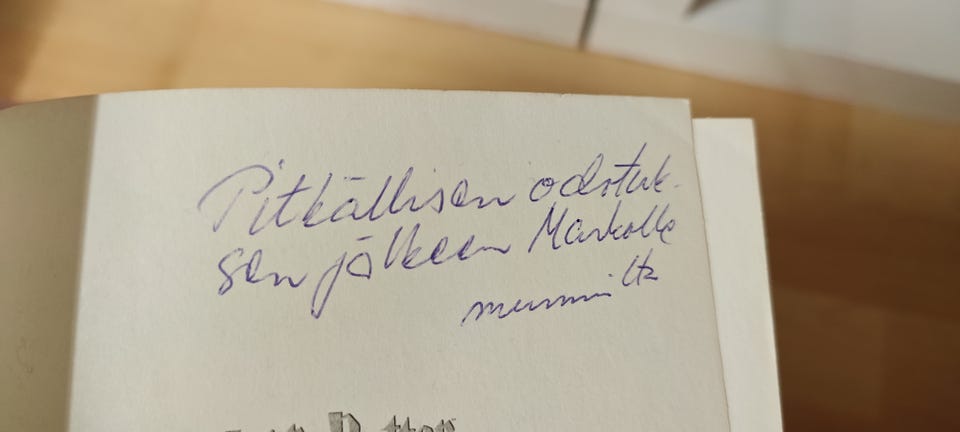 Pitkällisen odotuk-
sen jälkeen Markolle
mummilta
Potter